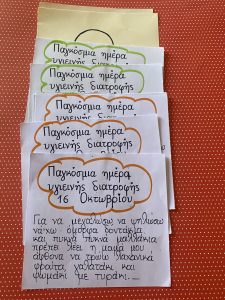 Παγκόσμια ημέρα
υγιεινής διατροφής
Παγκόσμια ημέρα
υγιεινής διατροφής
Παγκόσμια ημέρα
υγιεινής διατροφής
Παγκόσμια ημέρα
υγιεινής διατροφής
Παγκόσμια ημέρα
υγιεινής διατροφής
16 Οκτωβρίου
Για να μεγαλώσω να ψηλώσω
να'χω όμορφα δοντάκια
και πυκνά πυκνά μαλλάκια
πρέπει λέει η μαμά μου
άφθονα να τρώω λαχανικά
φρούτα, γαλατάκι και
ψωμάκι με τυράκι...